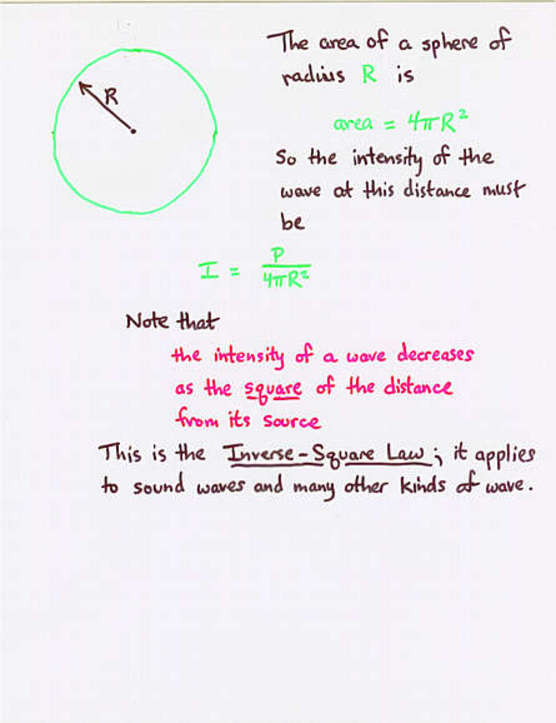 The area of a sphere of
radius R is
R
area = 4πR²
So the intensity of the
wave at this distance must
be
I = P / 4πR²
Note that
the intensity of a wave decreases
as the square of the distance
from its source
This is the Inverse-Square Law; it applies
to sound waves and many other kinds of wave.